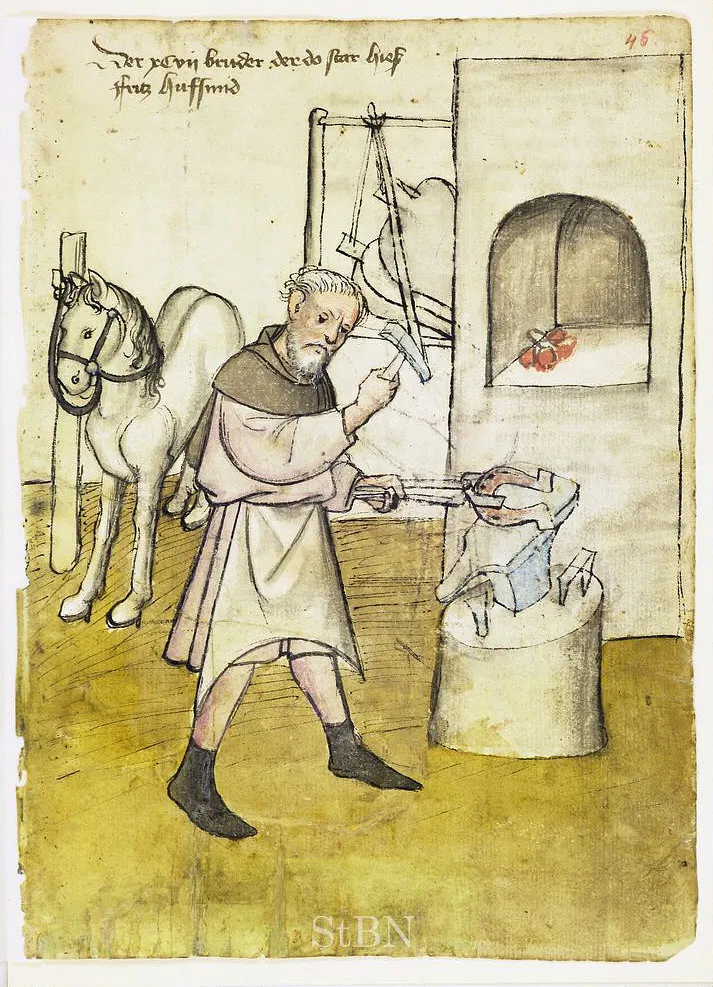 46
Der xCvii bruder der do starb hieß
ffritz Hufsmid
StBN